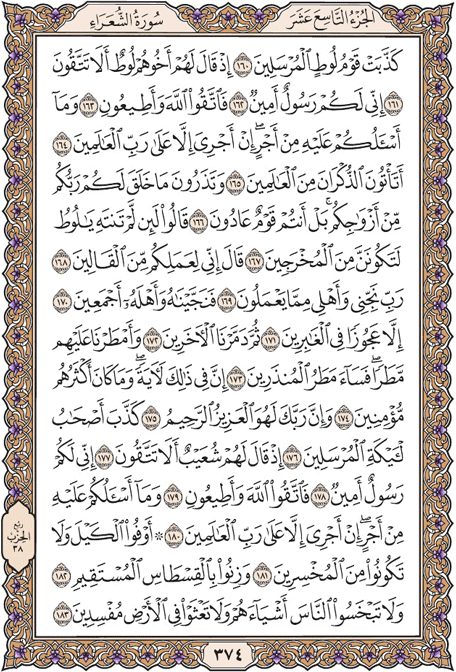 الجزء التاسع عشر سورة الشعراء
كَذَّبَتْ قَوْمُ لُوطٍ ٱلْمُرْسَلِينَ ١٦٠ إِذْ قَالَ لَهُمْ أَخُوهُمْ لُوطٌ أَلَا تَتَّقُونَ
١٦١ إِنِّى لَكُمْ رَسُولٌ أَمِينٌ ١٦٢ فَٱتَّقُوا۟ ٱللَّهَ وَأَطِيعُونِ ١٦٣ وَمَآ
أَسْـَٔلُكُمْ عَلَيْهِ مِنْ أَجْرٍ ۖ إِنْ أَجْرِىَ إِلَّا عَلَىٰ رَبِّ ٱلْعَـٰلَمِينَ ١٦٤
أَتَأْتُونَ ٱلذُّكْرَانَ مِنَ ٱلْعَـٰلَمِينَ ١٦٥ وَتَذَرُونَ مَا خَلَقَ لَكُمْ رَبُّكُم
مِّنْ أَزْوَٰجِكُم ۚ بَلْ أَنتُمْ قَوْمٌ عَادُونَ ١٦٦ قَالُوا۟ لَئِن لَّمْ تَنتَهِ يَـٰلُوطُ
لَتَكُونَنَّ مِنَ ٱلْمُخْرَجِينَ ١٦٧ قَالَ إِنِّى لِعَمَلِكُم مِّنَ ٱلْقَالِينَ ١٦٨
رَبِّ نَجِّنِى وَأَهْلِى مِمَّا يَعْمَلُونَ ١٦٩ فَنَجَّيْنَـٰهُ وَأَهْلَهُۥٓ أَجْمَعِينَ ١٧٠
إِلَّا عَجُوزًا فِى ٱلْغَـٰبِرِينَ ١٧١ ثُمَّ دَمَّرْنَا ٱلْـَٔاخَرِينَ ١٧٢ وَأَمْطَرْنَا عَلَيْهِم
مَّطَرًا ۖ فَسَآءَ مَطَرُ ٱلْمُنذَرِينَ ١٧٣ إِنَّ فِى ذَٰلِكَ لَـَٔايَةً ۖ وَمَا كَانَ أَكْثَرُهُم
مُّؤْمِنِينَ ١٧٤ وَإِنَّ رَبَّكَ لَهُوَ ٱلْعَزِيزُ ٱلرَّحِيمُ ١٧٥ كَذَّبَ أَصْحَـٰبُ
لْـَٔيْكَةِ ٱلْمُرْسَلِينَ ١٧٦ إِذْ قَالَ لَهُمْ شُعَيْبٌ أَلَا تَتَّقُونَ ١٧٧ إِنِّى لَكُمْ
رَسُولٌ أَمِينٌ ١٧٨ فَٱتَّقُوا۟ ٱللَّهَ وَأَطِيعُونِ ١٧٩ وَمَآ أَسْـَٔلُكُمْ عَلَيْهِ
مِنْ أَجْرٍ ۖ إِنْ أَجْرِىَ إِلَّا عَلَىٰ رَبِّ ٱلْعَـٰلَمِينَ ١٨٠ ۞ أَوْفُوا۟ ٱلْكَيْلَ وَلَا
تَكُونُوا۟ مِنَ ٱلْمُخْسِرِينَ ١٨١ وَزِنُوا۟ بِٱلْقِسْطَاسِ ٱلْمُسْتَقِيمِ ١٨٢
وَلَا تَبْخَسُوا۟ ٱلنَّاسَ أَشْيَآءَهُمْ وَلَا تَعْثَوْا۟ فِى ٱلْأَرْضِ مُفْسِدِينَ ١٨٣
ربع
الحزب
٣٨
٣٧٤